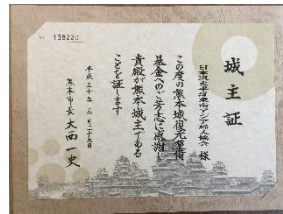 138220
城主証
様
この度の熊本城復元整備
基金へのご芳志に感謝し
貴殿が熊本城主である
ことを証します
平成三十年
熊本市長 大西一史